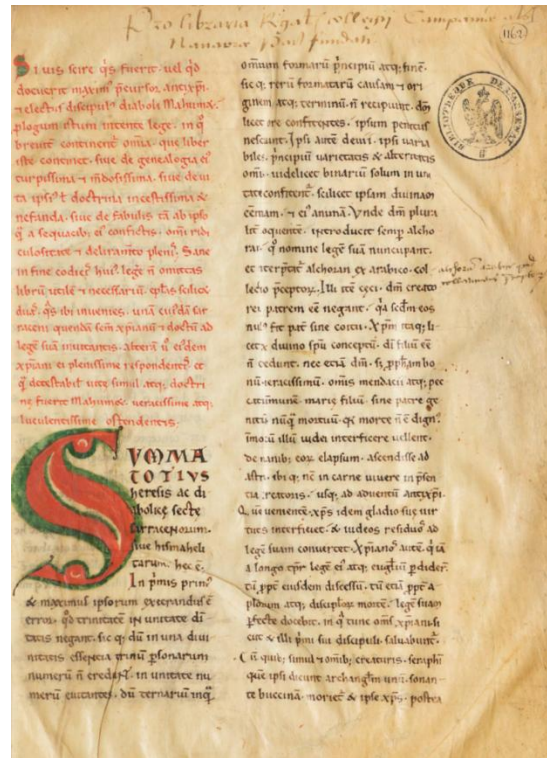 Pro libraria Regalis collegii Campanie alias
Navarre parisius fundati
1162
BIBLIOTHEQUE DE L'ARSENAL
Si uis scire q̄s fuerit uel q̄d
docuerit maxim' p̄cursor antixp̄i
⁊ electus discipul' diaboli Mahumet.
p̱logum istum intente lege. in q̊
breuit̄ continent̄ omīa. que liber
iste continet. siue de genealogia ei'
turpissima ⁊ īdofissima. siue de ui
ta ipsi' ⁊ doctrina incestissima &
nefanda. siue de fabulis tā ab ipso
q̄ a sequacib; ei' confictis. om̄i ridi
culositate ⁊ deliramto plenis. Sane
in fine codicis hui' lege n̄ omittas
librū utile ⁊ necessariū. ep̄las scilicet
duas. q̄s ibi inuenies. unā cuiusdā sar
raceni quendā suū xp̄ianū ⁊ doctū ad
legē suā inuitantis. alterā ū eidem
xp̄iani ei plenissime respondentis. et
q̄ detestabil' uite simul atq; doctri
ne fuerit Mahumet. ueracissime atq;
luculentissime ostendentis.
SVMMA
TOTIVS
heresis ac di
abolice secte
sarracenorum.
siue hismaheli
tarum. hec ē.
In p̄mis prim'
& maximus ipsorum execrandus ē
error. q̊d trinitatē in unitate di
tatis negant. sic q; dū in una diui
nitatis essentia trinū p̱sonarum
numerū n̄ credunt. in unitate nu
merū euitantes. dū ternariū inq̄
omnium formarū p̄ncipiū atq; finē.
sic q; rerū formatarū causam ⁊ ori
ginem atq; terminū n̄ recipiunt. dm̄
licet ore confitentes. ipsum penitus
nesciunt. Ipsi autē deuii. ipsi uaria
biles. p̄ncipiū uarietatis & alteritatis
omīs. uidelicet binariū solum in uni
tate confitent̄. scilicet ipsam diuinam
eēntiam. ⁊ ei' animā. Vnde dm̄ plura
lit̄ loquentē. introducit semp̱ alcho
ran. q̊ nomine legē suā nuncupant.
et int̄p̱tat̄ alchoran ex arabico. col
lectio p̄ceptoꝝ. Illi itē ceci. dm̄ creato
rem patrem eē negant. q̄a sc̄dm eos
null' fit pat̄ sine coitu. Xp̄m itaq; li
cet ex diuino sp̄u conceptū. di filiū eē
n̄ credunt. nec etiā dm̄. s; p̱ph̄am bo
nū. ueracissimū. omīs mendacii atq; pec
cati inmunē. marie filiū. sine patre ge
nitū. nūq̄ mortuū. q̄a morte n̄ ē dign'.
īmo cū illū iudei interficere uellent.
de manib; eoꝝ elapsum. ascendisse ad
astra. ibi q; nc̄ in carne uiuere in p̄sen
tia creatoris. usq; ad aduentū antixp̄i.
Quē uenientē. xp̄s idem gladio sue uir
tutis interficiet. & iudeos residuos ad
legē suam conuertet. Xp̄ianos autē. q̄ iā
a longo tp̄r legē ei' atq; euḡliū p̱dider̄.
tū ppt̄ eiusdem discessū. tū etiā ppt̄ a
postolorum atq; discipuloꝝ mortē. legē suam
p̱fecte docebit. in q̄ tunc om̄s xp̄iani si
cut & illi p̄mi sui discipuli saluabunt̄.
Cū quib; simul ⁊ omīb; creaturis. seraphī
quē ipsi dicunt archanḡlm unū. sonan
te buccinā. moriet̄ & ipse xp̄s. postea